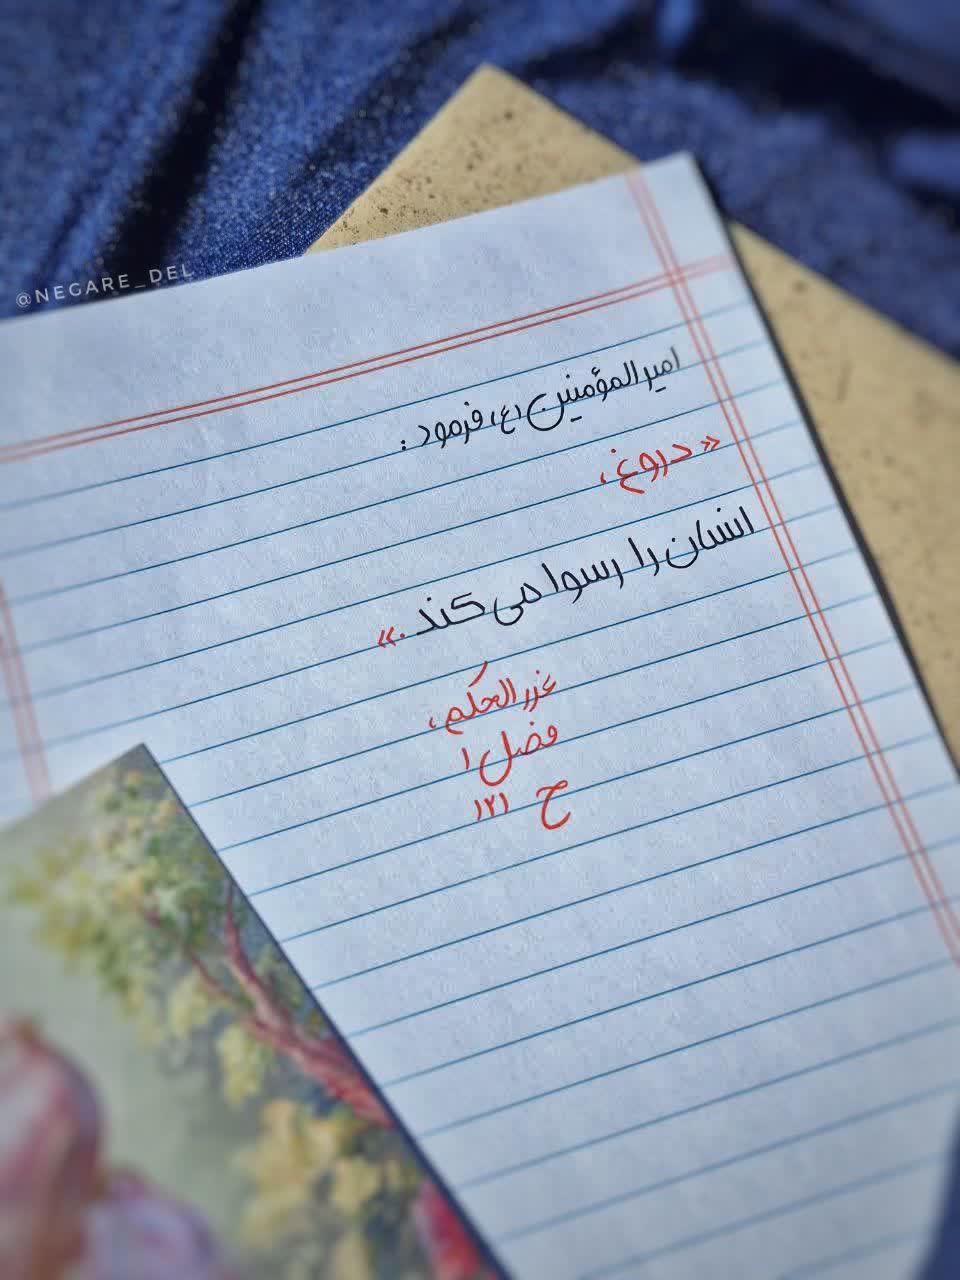 @NEGARE_DEL
امیرالمؤمنین (ع) فرمود :
«دروغ ،
انسان را رسوا می کند .»
غررالحکم ،
فصل ۱
ح ۱۲۱